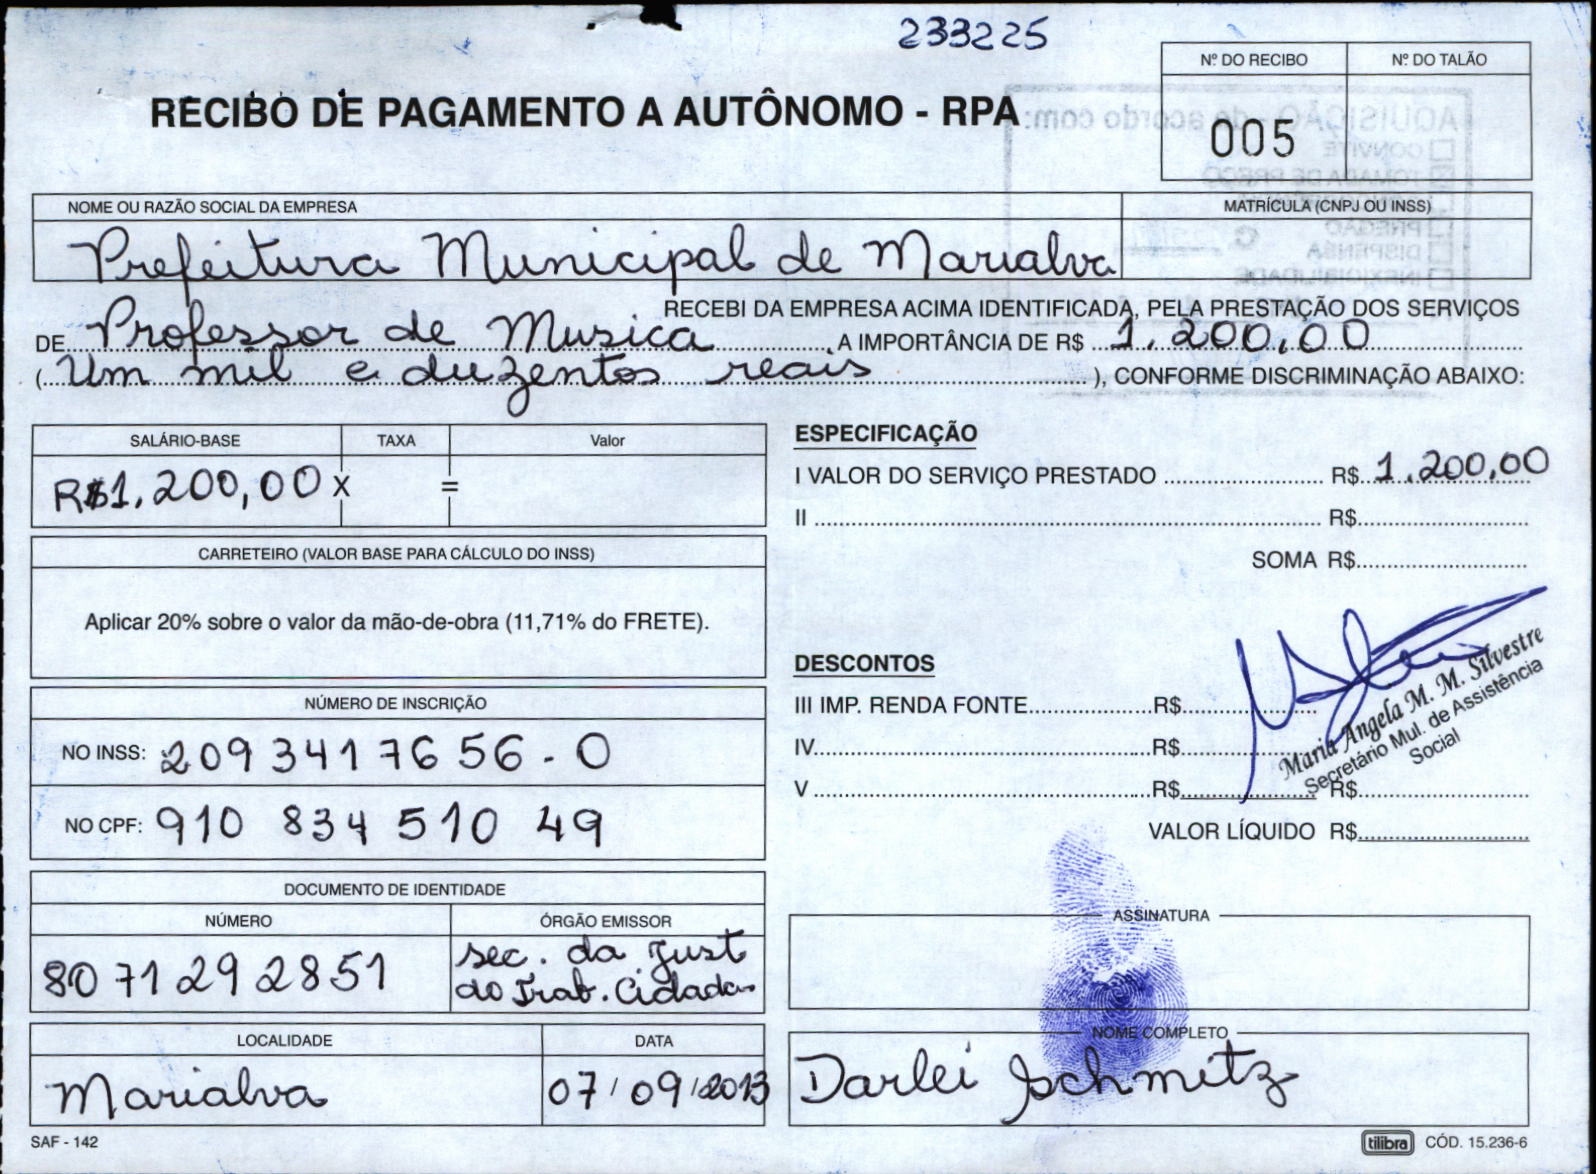 233225
Nº DO RECIBO Nº DO TALÃO
RECIBO DE PAGAMENTO A AUTÔNOMO - RPA
005
AQUISIÇÃO - de acordo com:
CONVITE
TOMADA DE PREÇO
PREGÃO
DISPENSA
INEXIGIBILIDADE
NOME OU RAZÃO SOCIAL DA EMPRESA MATRÍCULA (CNPJ OU INSS)
Prefeitura Municipal de Marialva
RECEBI DA EMPRESA ACIMA IDENTIFICADA, PELA PRESTAÇÃO DOS SERVIÇOS
DE Professor de Musica A IMPORTÂNCIA DE R$ 1.200,00
(Um mil e duzentos reais), CONFORME DISCRIMINAÇÃO ABAIXO:
SALÁRIO-BASE TAXA Valor
R$1,200,00 X =
CARRETEIRO (VALOR BASE PARA CÁLCULO DO INSS)
Aplicar 20% sobre o valor da mão-de-obra (11,71% do FRETE).
NÚMERO DE INSCRIÇÃO
NO INSS: 2093417656-0
NO CPF: 910 834 510 49
DOCUMENTO DE IDENTIDADE
NÚMERO ÓRGÃO EMISSOR
8071292851 sec. da Just
do Trab. Cidadas
LOCALIDADE DATA
Marialva 07/09/2013
SAF - 142
ESPECIFICAÇÃO
I VALOR DO SERVIÇO PRESTADO R$ 1.200,00
II R$
SOMA R$
DESCONTOS
III IMP. RENDA FONTE R$
IV R$
V R$ R$
VALOR LÍQUIDO R$
Maria Angela M. M. Silvestre
Secretário Mul. de Assistência
Social
ASSINATURA
NOME COMPLETO
Darlei Schmitz
tilibra CÓD. 15.236-6